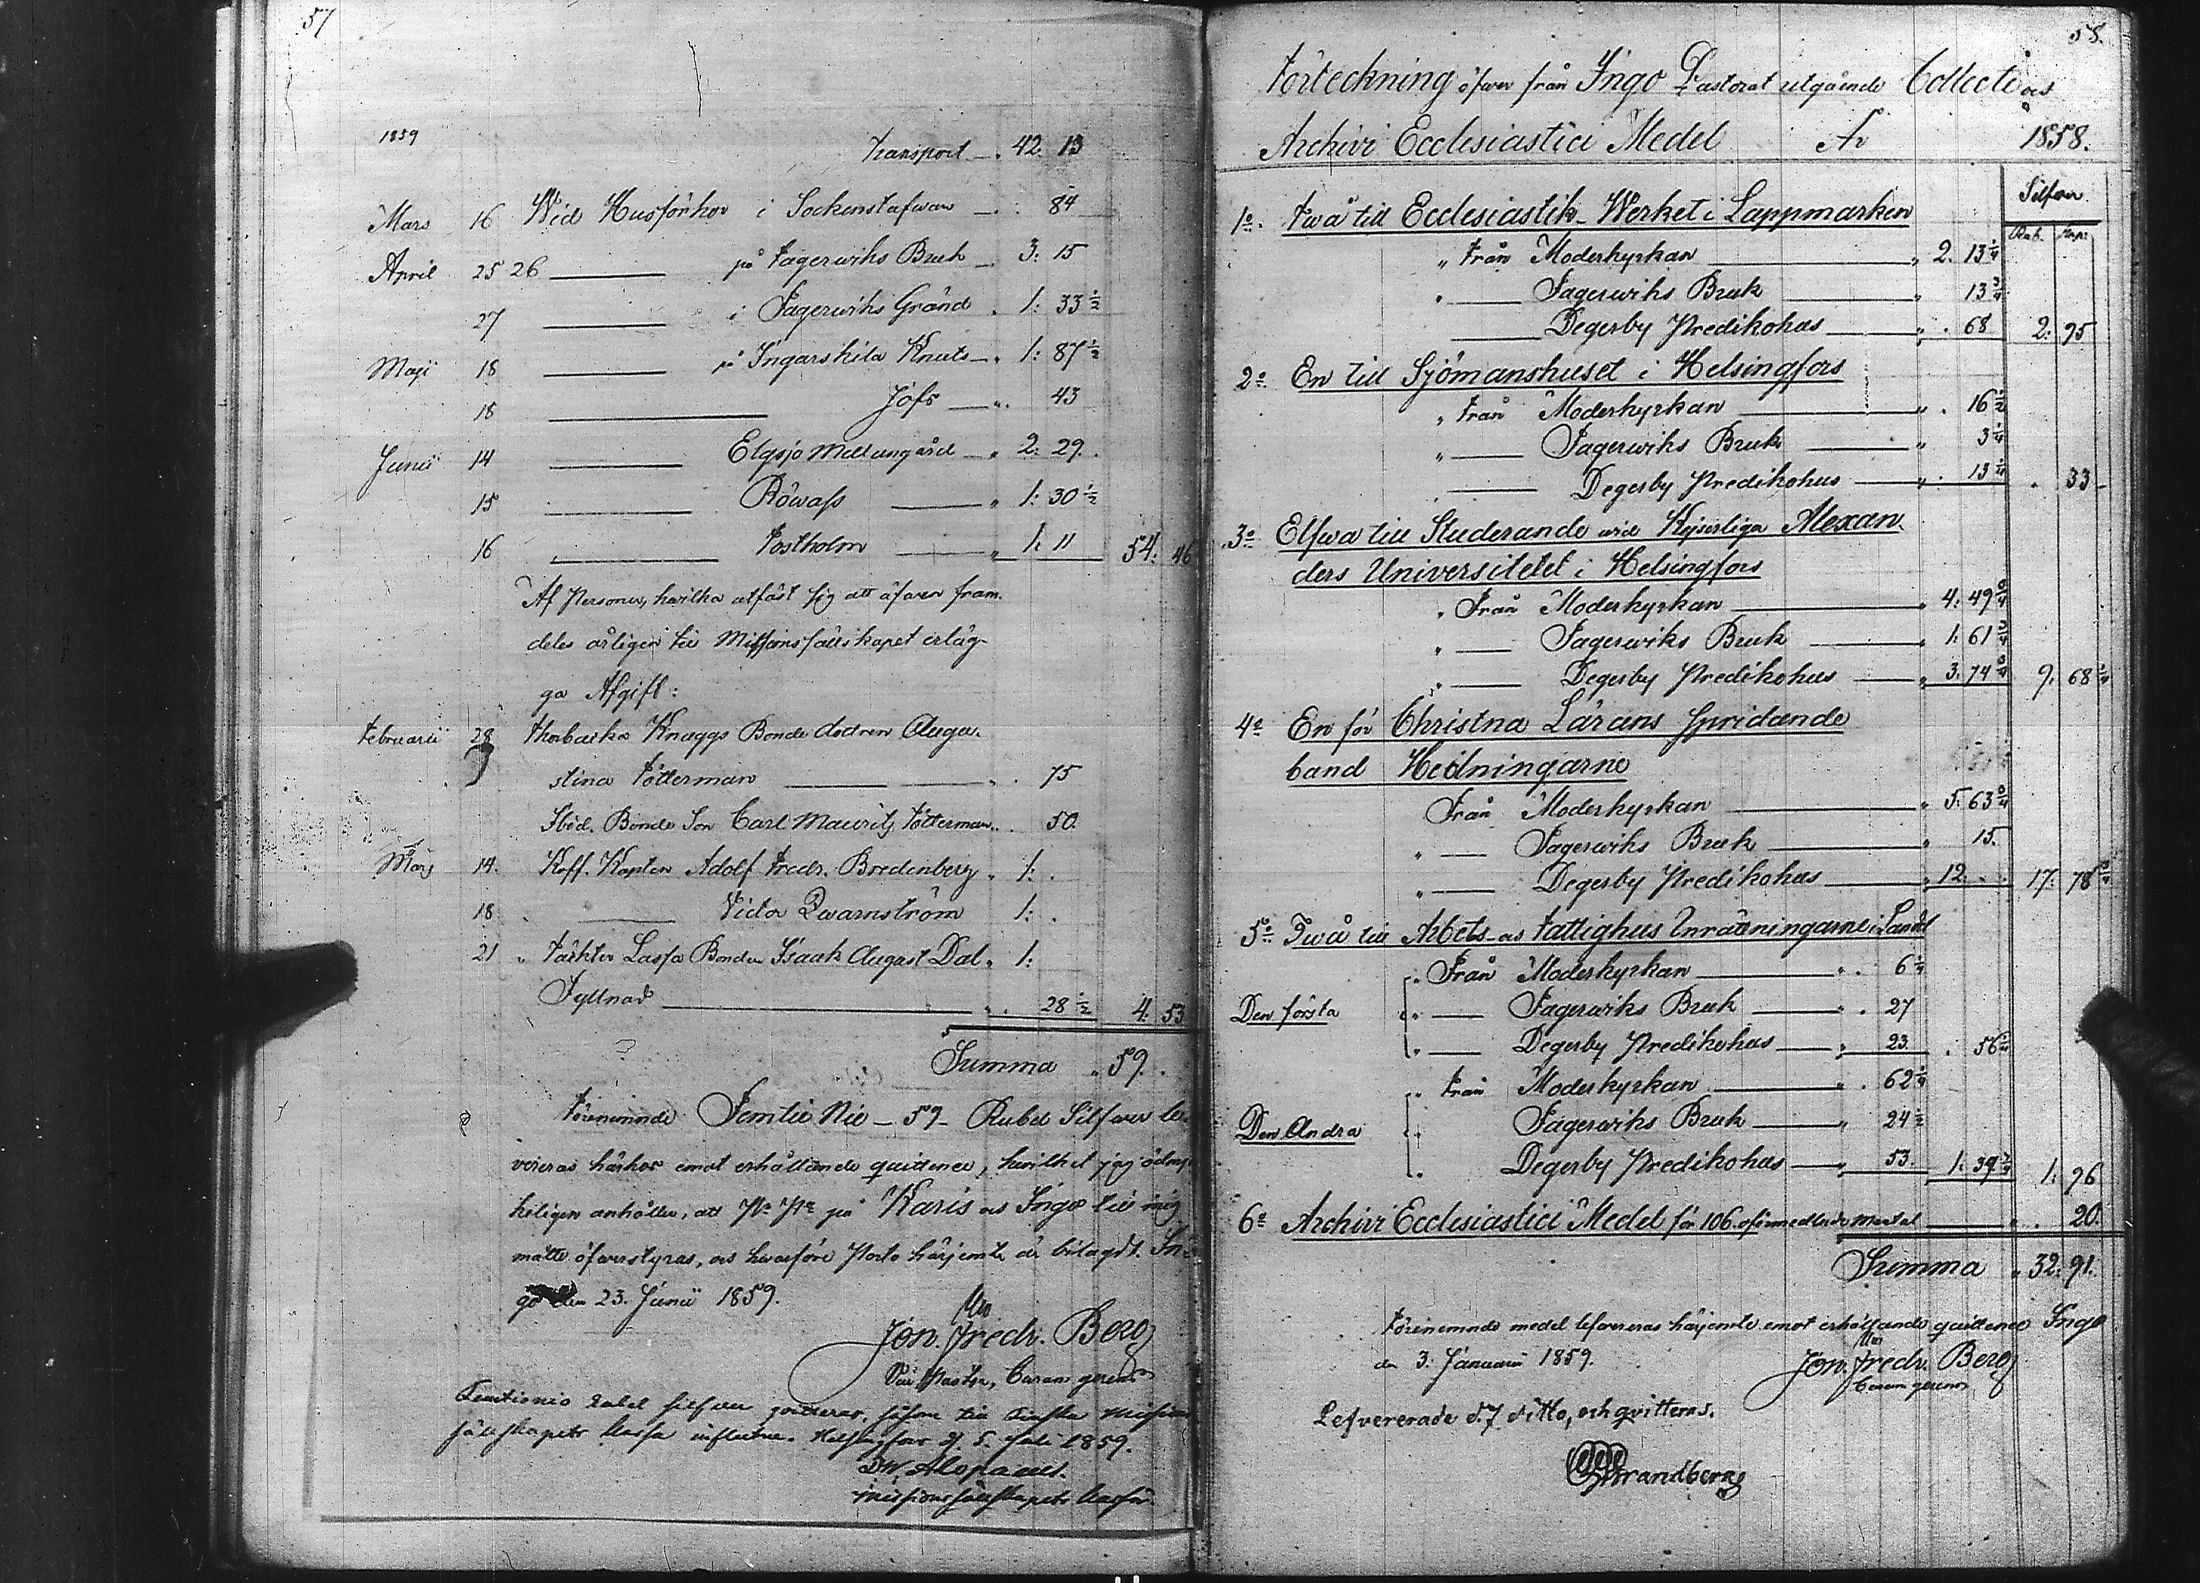 57
1859
Transport — . 42. 13
Mars 16 Wid Husförhör i Sockenstafwan — . 84
April 25 26 — på Fagerwiks Bruk — 3: 15
27 — i Fagerwiks Gränd . 1: 33 1/2
Maji 18 — på Ingarskila Knuts — " 1: 87 1/2
18 — Jofs — " . 43
Junii 14 — Elgsjö Mellangård — " 2: 29.
15 — Röwass — " 1: 30 1/2
16 — Tostholm — " 1: 11 54: 46
Af Personer, hwilka utfäst sig att äfwen fram-
deles årligen till Missionssällskapet erläg-
ga Afgift:
Februarii 28 Thorbacka Knaggs Bonde dottren Augu-
stina Tötterman — " . 75
Ibid. Bonde Son Carl Mauritz Tötterman " . 50.
Mars 14. Koff. Kapten Adolf Fredr. Bredenberg " 1: .
18 . — Victor Qwarnström 1: .
21 " Täckter Lassa Bonden Isaak August Dal " 1:
Fyllnad — " . 28 1/2 4. 53
Summa " 59. .
Förenemnde Femtie Nie — 59 — Rubel Silfwer le-
vereras härhos emot erhållande quittence, hwilket jag ödmju-
keligen anhåller, att Pr Pr på Karis och Ingo till mig
måtte öfwerstyras, och hwarföre Porto härjemte är bilagdt. In-
go den 23. Junii 1859.
Jon. Fredr. Berg
Vice Pastor, Curam gerens
Femtionio rubel silfver qvitteras, såsom till Finska Missions
sällskapets kassa influtne. Helsingfors d. 5. Juli 1859.
Alopaeus.
Missionssällskapets Kassör.
58.
Förteckning öfwer från Ingo Pastorat utgående Collect och
Archivi Ecclesiastici Medel År 1858.
Silfwer.
Rub. Kop.
1o. Twå till Ecclesiastik-Werket i Lappmarken
" Från Moderkyrkan — " 2. 13 1/4
" — Fagerwiks Bruk — " 13 3/4
— Degerby Predikohus — " . 68 2: 95
2o. En till Sjömanshuset i Helsingfors
" Från Moderkyrkan — " . 16 1/2
" — Fagerwiks Bruk — " 3 1/4
— Degerby Predikohus — " . 13 1/4 . 33 -
3o Elfwa till Studerande wid Kejserliga Alexan-
ders Universitetet i Helsingfors
" Från Moderkyrkan — " 4: 49 3/4
" — Fagerwiks Bruk — 1: 61 3/4
" — Degerby Predikohus — " 3: 74 3/4 9: 68 1/4
4o En för Christna Lärans spridande
bland Hedningarne
Från Moderkyrkan — " 5: 63 3/4
" — Fagerwiks Bruk — " 15.
" — Degerby Predikohus — " 12. . 17: 78 3/4
5o Twå till Arbets- och Fattighus Inrättningarne i Landet
" Från Moderkyrkan — " . 6 1/4
Den första " — Fagerwiks Bruk — " . 27
" — Degerby Predikohus — " 23. . 56 1/4
" Från Moderkyrkan — " . 62 1/4
Den Andra " Fagerwiks Bruk — " 24 1/2
" Degerby Predikohus — " 53. 1: 39 3/4 1: 96
6o Archivi Ecclesiastici Medel för 106 oförmedlade Mantal — " . 20.
Summa " 32: 91.
Förenemnde medel lefwereras härjemte emot erhållande quittence Ingo
den 3. Januarii 1859.
Jon. Fredr. Berg
Curam gerens
Lefvererade d. 7 ditto, och qvitteras.
Strandberg